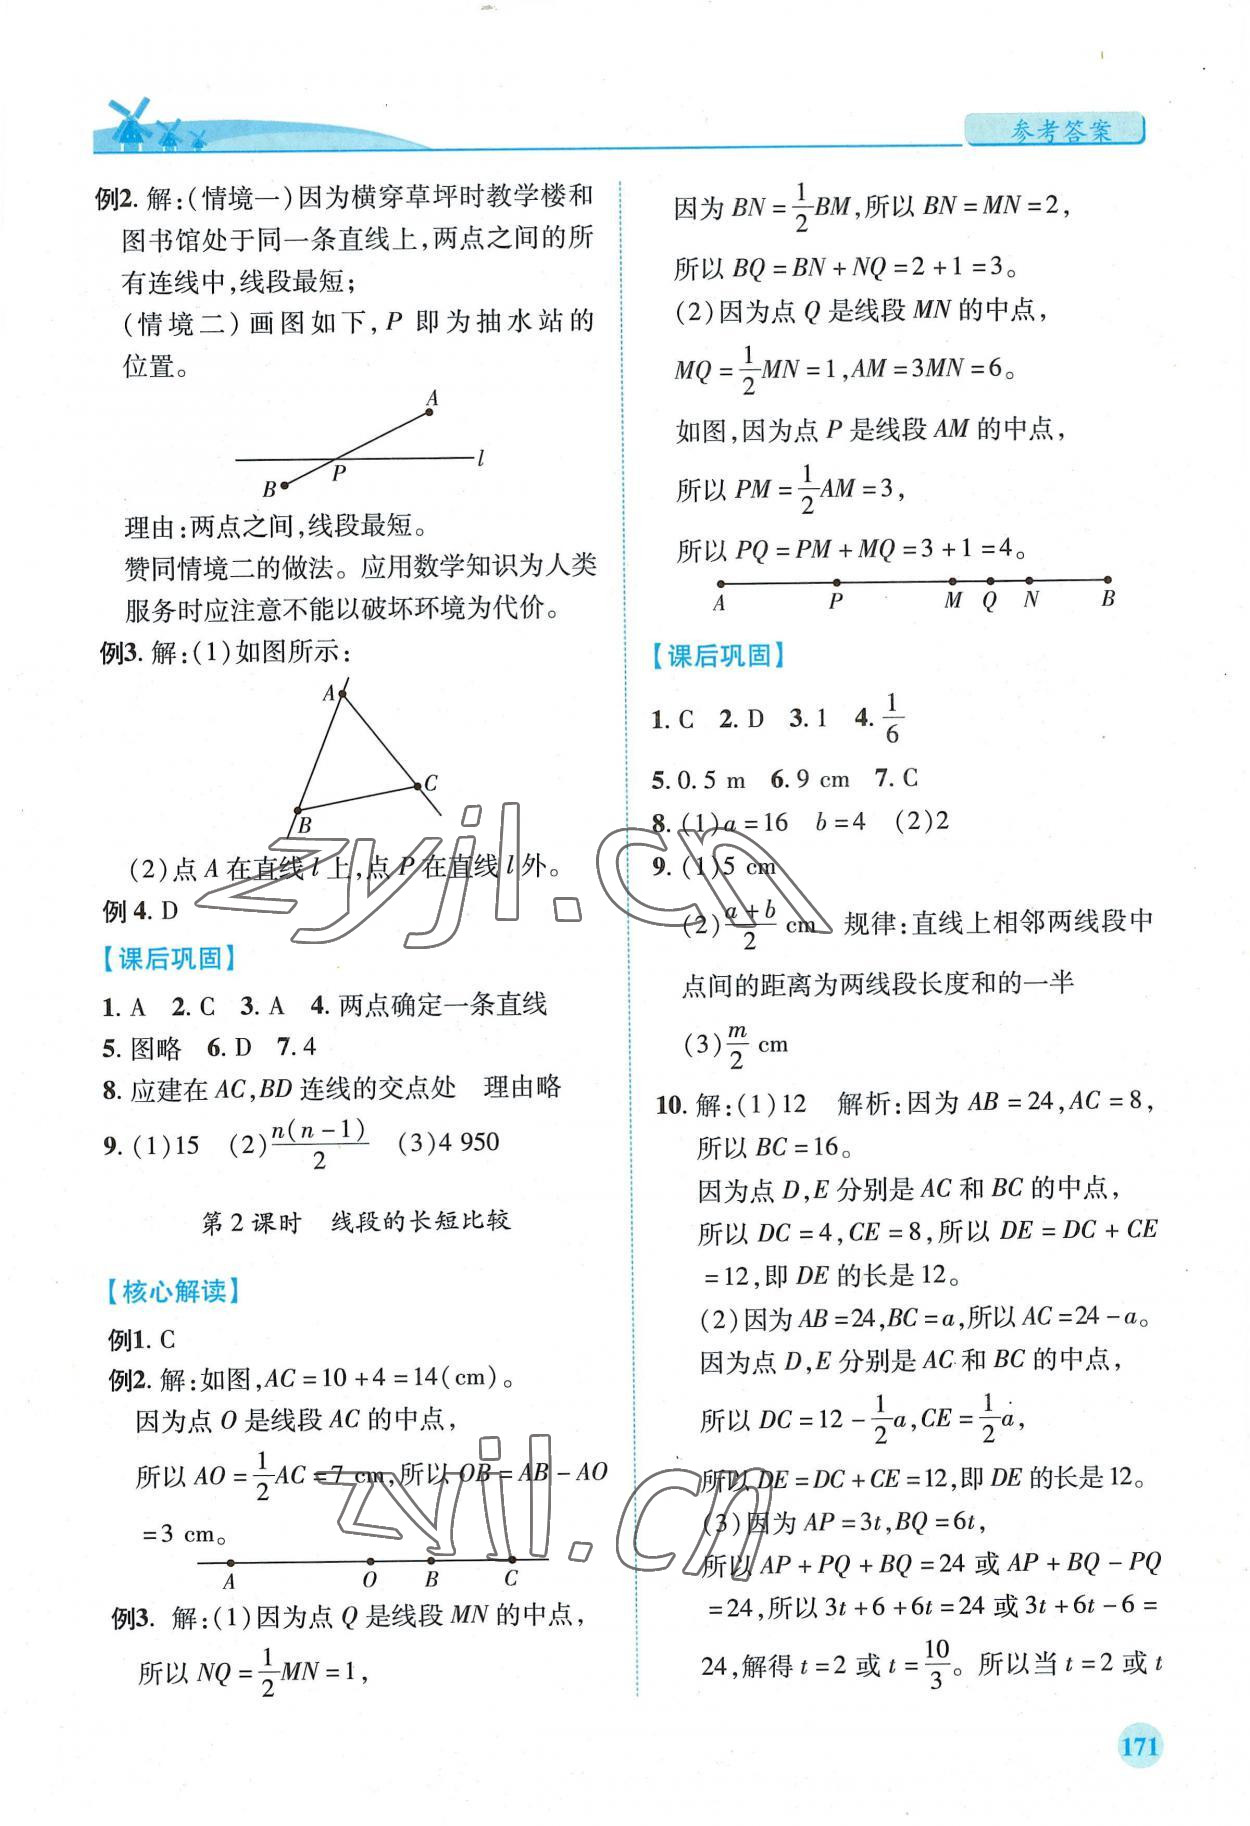 参考答案
例2. 解:(情境一)因为横穿草坪时教学楼和
图书馆处于同一条直线上,两点之间的所
有连线中,线段最短;
(情境二)画图如下,P 即为抽水站的
位置。
A
l
P
B
理由:两点之间,线段最短。
赞同情境二的做法。应用数学知识为人类
服务时应注意不能以破坏环境为代价。
例3. 解:(1)如图所示:
A
C
B
(2)点 A 在直线 l 上,点 P 在直线 l 外。
例 4. D
【课后巩固】
1. A 2. C 3. A 4. 两点确定一条直线
5. 图略 6. D 7. 4
8. 应建在 AC,BD 连线的交点处 理由略
9. (1)15 (2)\frac{n(n-1)}{2} (3)4 950
第 2 课时 线段的长短比较
【核心解读】
例1. C
例2. 解:如图,AC=10+4=14(cm)。
因为点 O 是线段 AC 的中点,
所以 AO=\frac{1}{2}AC=7 cm,所以 OB=AB-AO
=3 cm。
A O B C
例3. 解:(1)因为点 Q 是线段 MN 的中点,
所以 NQ=\frac{1}{2}MN=1,
因为 BN=\frac{1}{2}BM,所以 BN=MN=2,
所以 BQ=BN+NQ=2+1=3。
(2)因为点 Q 是线段 MN 的中点,
MQ=\frac{1}{2}MN=1,AM=3MN=6。
如图,因为点 P 是线段 AM 的中点,
所以 PM=\frac{1}{2}AM=3,
所以 PQ=PM+MQ=3+1=4。
A P M Q N B
【课后巩固】
1. C 2. D 3. 1 4. \frac{1}{6}
5. 0.5 m 6. 9 cm 7. C
8. (1)a=16 b=4 (2)2
9. (1)5 cm
(2)\frac{a+b}{2} cm 规律:直线上相邻两线段中
点间的距离为两线段长度和的一半
(3)\frac{m}{2} cm
10. 解:(1)12 解析:因为 AB=24,AC=8,
所以 BC=16。
因为点 D,E 分别是 AC 和 BC 的中点,
所以 DC=4,CE=8,所以 DE=DC+CE
=12,即 DE 的长是 12。
(2)因为 AB=24,BC=a,所以 AC=24-a。
因为点 D,E 分别是 AC 和 BC 的中点,
所以 DC=12-\frac{1}{2}a,CE=\frac{1}{2}a,
所以 DE=DC+CE=12,即 DE 的长是 12。
(3)因为 AP=3t,BQ=6t,
所以 AP+PQ+BQ=24 或 AP+BQ-PQ
=24,所以 3t+6+6t=24 或 3t+6t-6=
24,解得 t=2 或 t=\frac{10}{3}。所以当 t=2 或 t
171
zyjl.cn
zyjl.cn